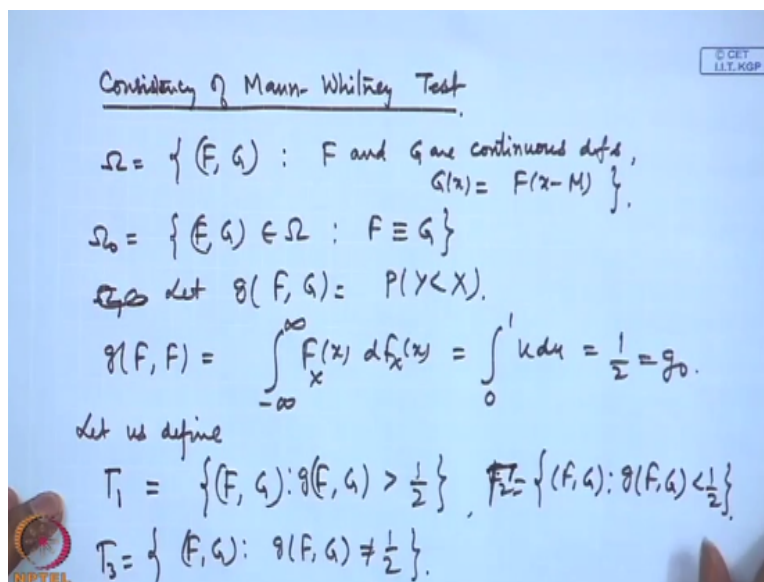 © CET
I.I.T. KGP
Consistency of Mann-Whitney Test.
Ω = { (F, G) : F and G are continuous dfs,
G(x) = F(x-M) }.
Ω₀ = { (F, G) ∈ Ω : F ≡ G }
Let g(F, G) = P(Y<X).
g(F, F) = ∫_{-∞}^{∞} F_X(x) dF_X(x) = ∫_0^1 u du = 1/2 = g₀.
Let us define
T₁ = { (F, G) : g(F, G) > 1/2 }, T₂ = { (F, G) : g(F, G) < 1/2 }.
T₃ = { (F, G) : g(F, G) ≠ 1/2 }.
NPTEL